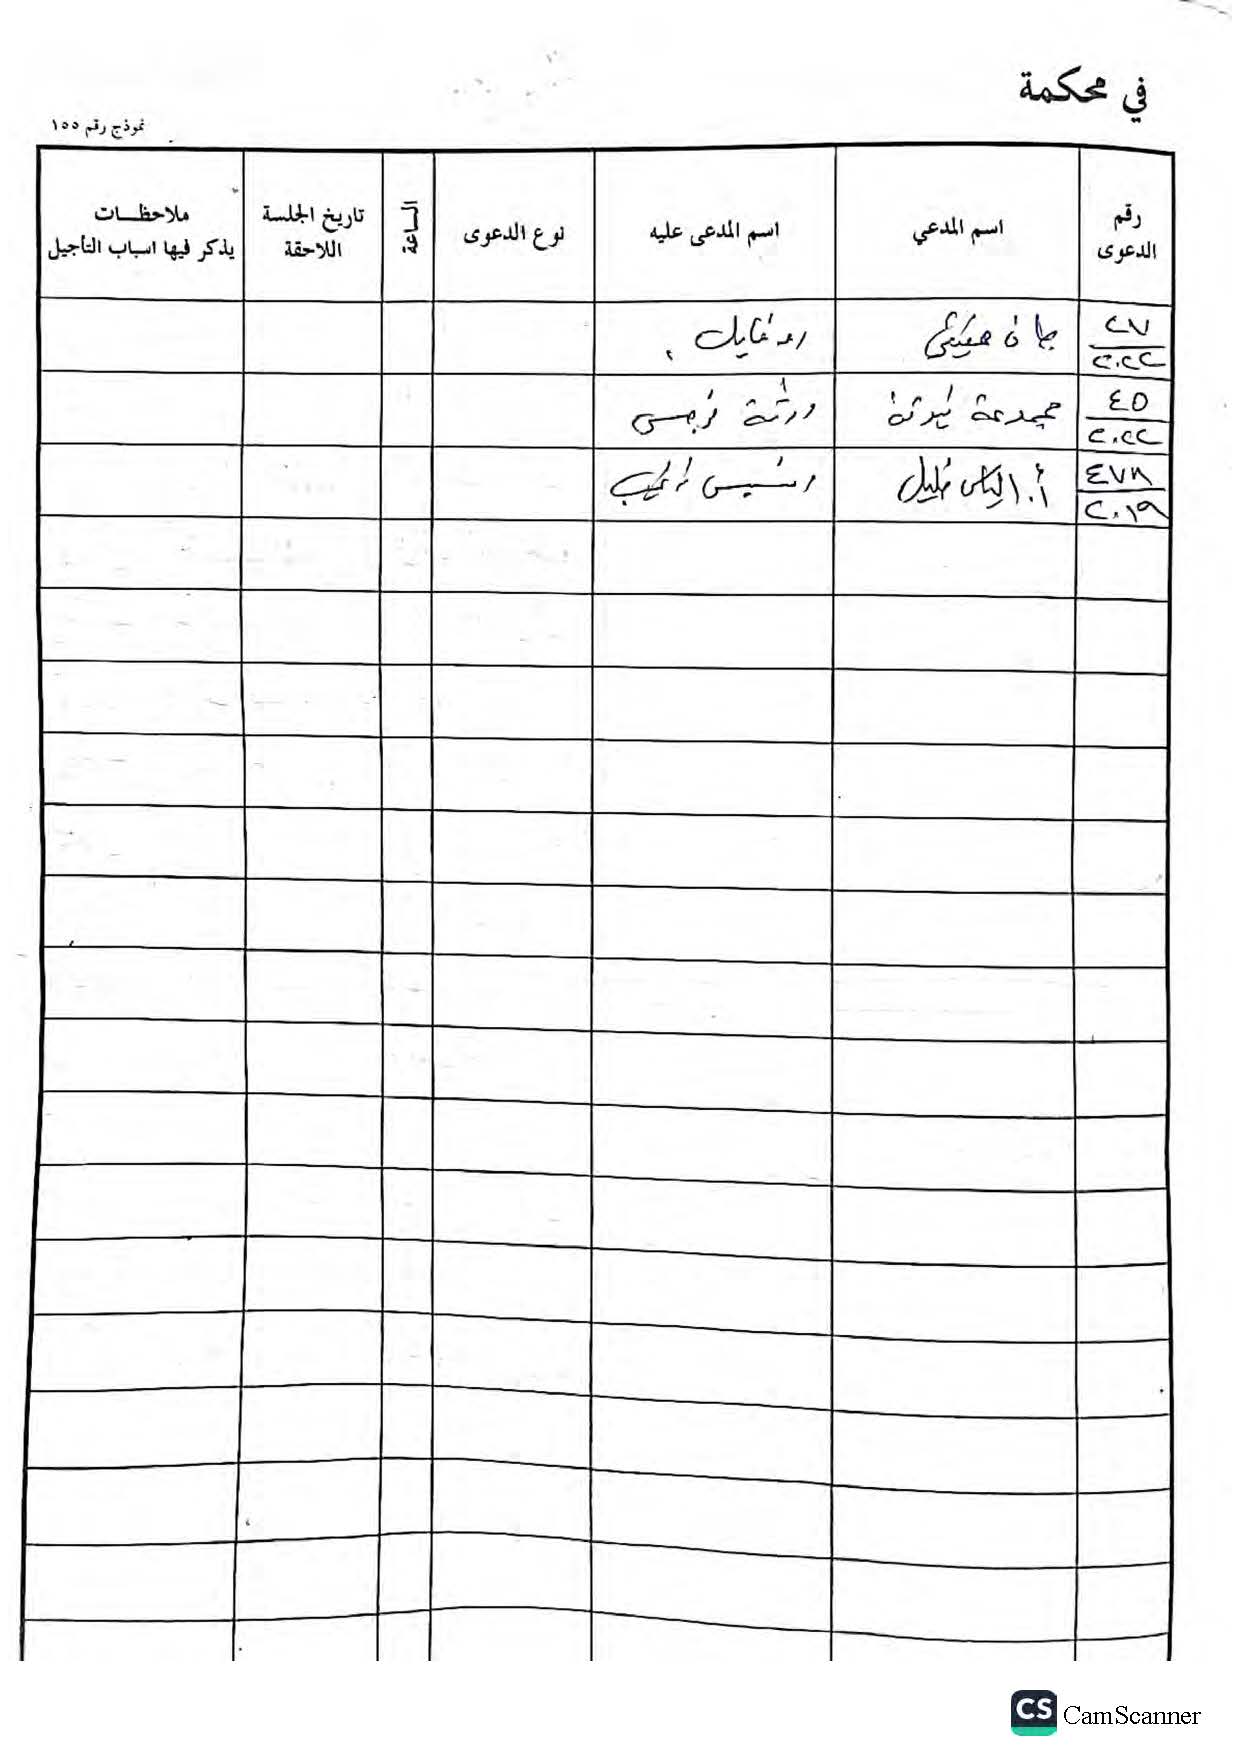 في محكمة
نموذج رقم ١٥٥
رقم الدعوى
اسم المدعي
اسم المدعى عليه
نوع الدعوى
الساعة
تاريخ الجلسة اللاحقة
ملاحظات يذكر فيها اسباب التأجيل
٢٧/٢٠٢٢ جان
٤٥/٢٠٢٢ مجموعة ورثة نرجس
٤٧٨/٢٠١٩ أ. الياس خليل
CS CamScanner